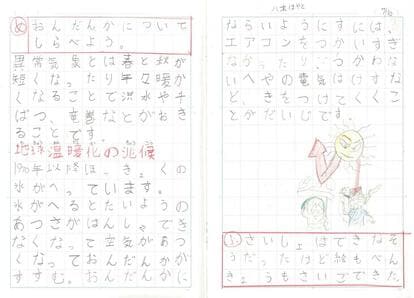 め
おんだんかについて
しらべよう。
異常気象とは春と秋が
短くなったり年々暖か
くなることで洪水や干
ばつ、竜巻などがおき
ることです。
地球温暖化の兆候
氷がへっています。
氷がへるとたいようの
あつさがはんしゃでき
なくなって空気があつ
くなっておんだんかが
すすむ。おんだんかに
ならいようにすには、
エアコンをつかいすぎ
なかったり、つかわな
いへやの電気はけすな
ど、きをつけてくく
とかだいじです。
さいしょはできなそ
うだったけど絵もべん
きょうもさいごできた。